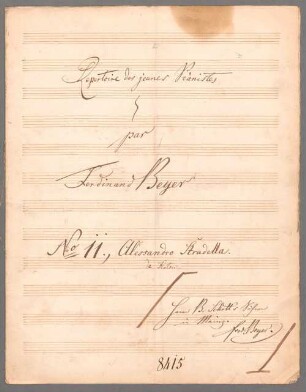 Répertoire des jeunes Pianistes
par
Ferdinand Beyer
No 11., Alessandro Stradella.
B. Schott's
in Mainz
Ferd. Beyer.
8415